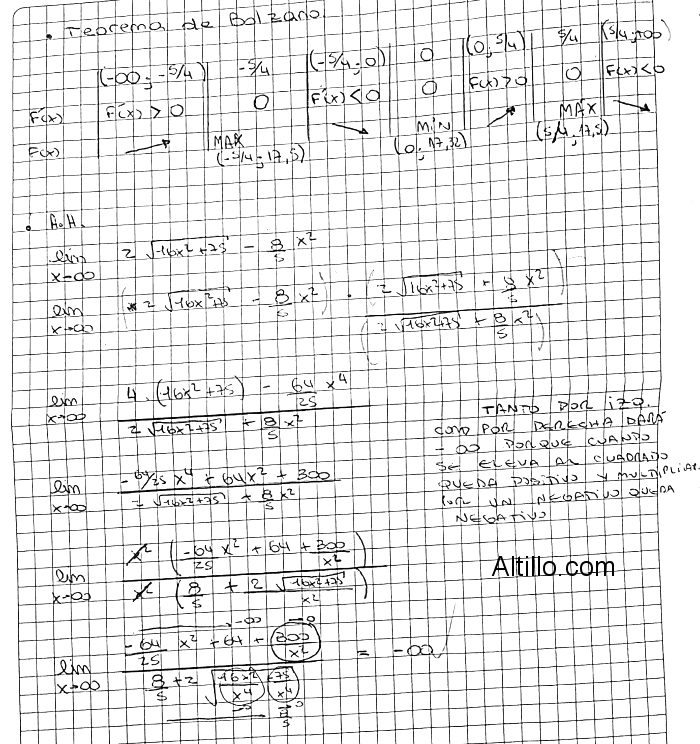 • Teorema de Bolzano
(-∞; -5/4) | -5/4 | (-5/4; 0) | 0 | (0; 5/4) | 5/4 | (5/4; +∞)
F'(x) F'(x) > 0 | 0 | F'(x) < 0 | 0 | F(x) > 0 | 0 | F(x) < 0
F(x) ↗ MAX (-5/4; 17,5) ↘ MÍN (0; 17,32) ↗ MÁX (5/4, 17,5) ↘
• A.H.
lim x→∞ 2 √16x²+75 - 8/5 x²
lim x→∞ (2 √16x²+75 - 8/5 x²) · (2 √16x²+75 + 8/5 x²) / (2 √16x²+75 + 8/5 x²)
lim x→∞ 4 · (16x²+75) - 64/25 x⁴ / 2 √16x²+75 + 8/5 x²
lim x→∞ -64/25 x⁴ + 64x² + 300 / 2 √16x²+75 + 8/5 x²
lim x→∞ x² (-64/25 x² + 64 + 300/x²) / x² (8/5 + 2 √16x²+75 / x²)
lim x→∞ -64/25 x² + 64 + 300/x² / 8/5 + 2 √16x²/x⁴ 75/x⁴ = -∞
→-∞ →0
→0 →0
8/5
TANTO POR IZQ.
COMO POR DERECHA DARÁ
-∞ PORQUE CUANTO
SE ELEVA AL CUADRADO
QUEDA POSITIVO Y MULTIPLICAR
POR UN NEGATIVO QUEDA
NEGATIVO
Altillo.com